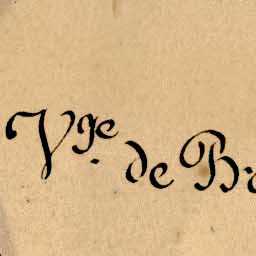 Vge. de